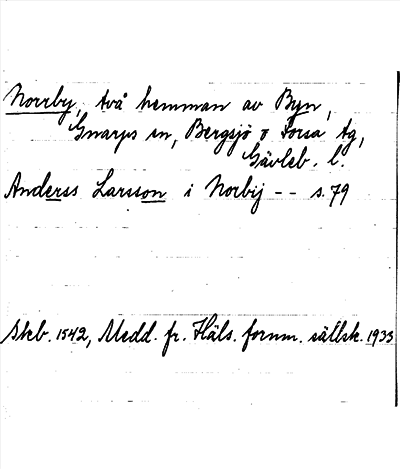 Norrby, två hemman av Byn,
Gnarps sn, Bergsjö o Forsa tg,
Gävleb. l.
Anderss Larsson i Norbij -- s. 79
Skb. 1542, Medd. fr. Häls. fornm. sällsk. 1935